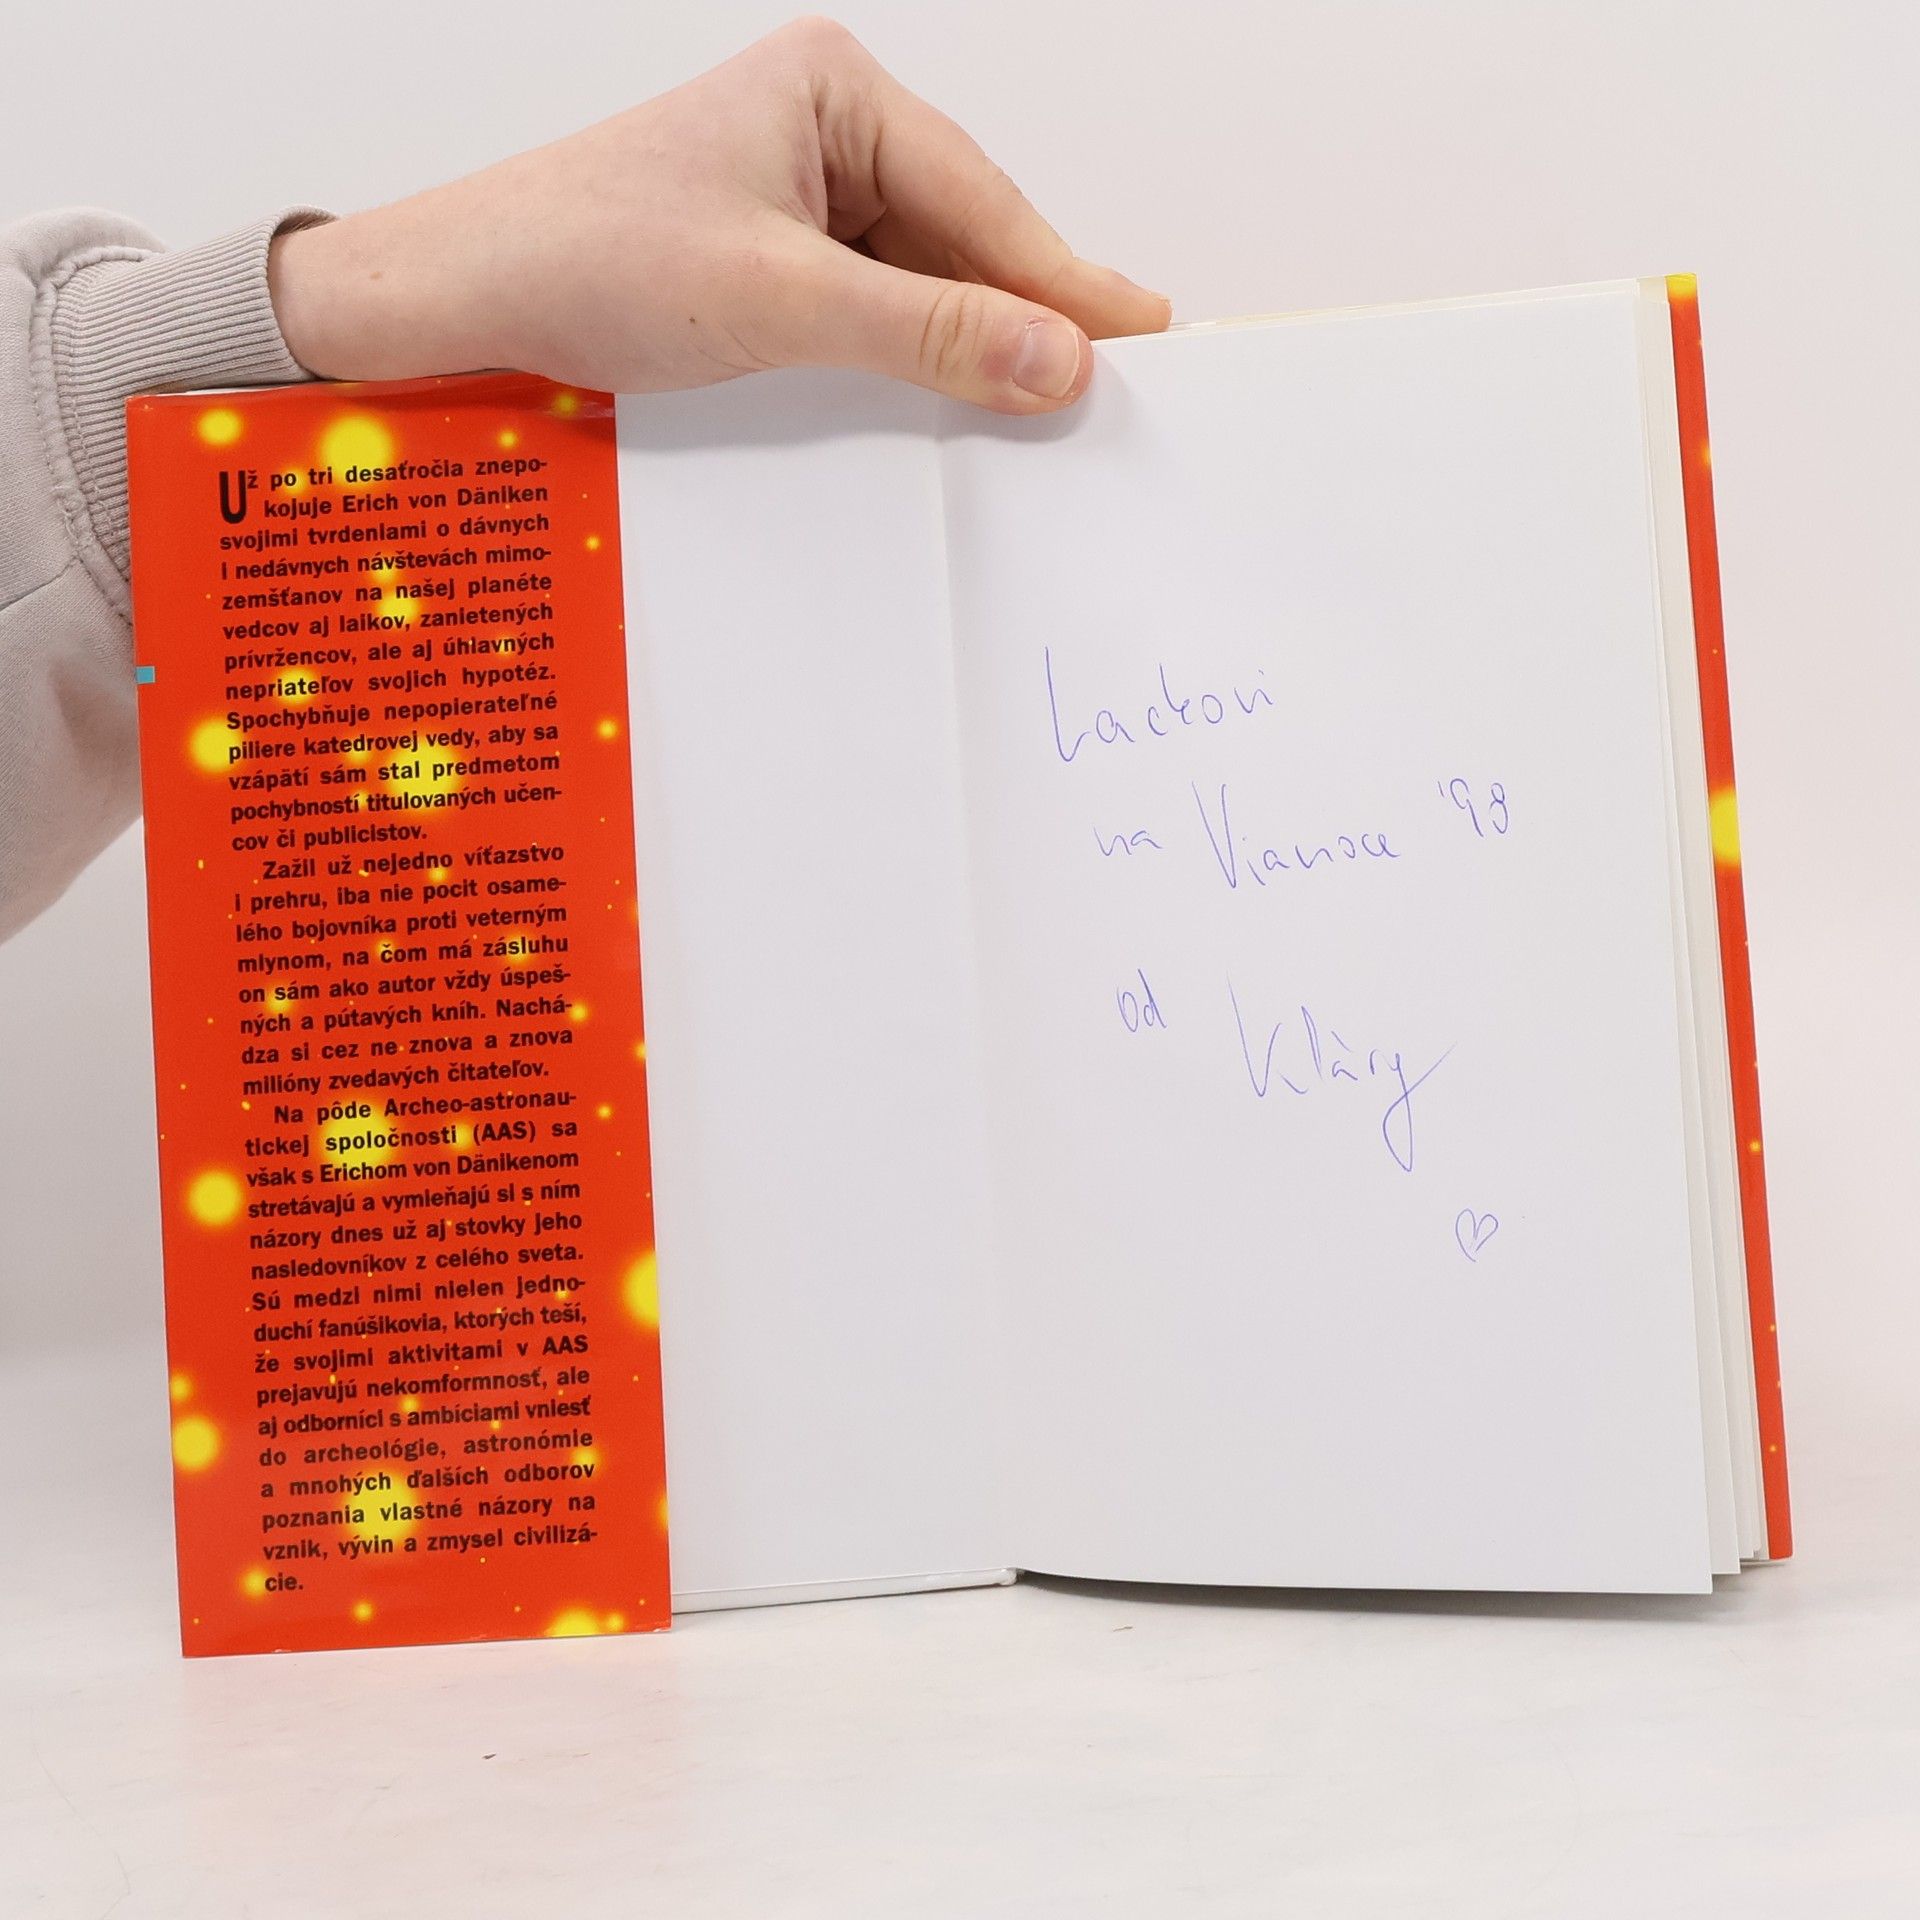 Už po tri desaťročia znepo-
kojuje Erich von Däniken
svojimi tvrdeniami o dávnych
i nedávnych návštevách mimo-
zemšťanov na našej planéte
vedcov aj laikov, zanietených
prívržencov, ale aj úhlavných
nepriateľov svojich hypotéz.
Spochybňuje nepopierateľné
piliere katedrovej vedy, aby sa
vzápätí sám stal predmetom
pochybností titulovaných učen-
cov či publicistov.
Zažil už nejedno víťazstvo
i prehru, iba nie pocit osame-
lého bojovníka proti veterným
mlynom, na čom má zásluhu
on sám ako autor vždy úspeš-
ných a pútavých kníh. Nachá-
dza si cez ne znova a znova
milióny zvedavých čitateľov.
Na pôde Archeo-astronau-
tickej spoločnosti (AAS) sa
však s Erichom von Dänikenom
stretávajú a vymieňajú si s ním
názory dnes už aj stovky jeho
nasledovníkov z celého sveta.
Sú medzi nimi nielen jedno-
duchí fanúšikovia, ktorých teší,
že svojimi aktivitami v AAS
prejavujú nekomformnosť, ale
aj odborníci s ambíciami vniesť
do archeológie, astronómie
a mnohých ďalších odborov
poznania vlastné názory na
vznik, vývin a zmysel civilizá-
cie.
Lackovi
na Vianoce '98
od Kláry